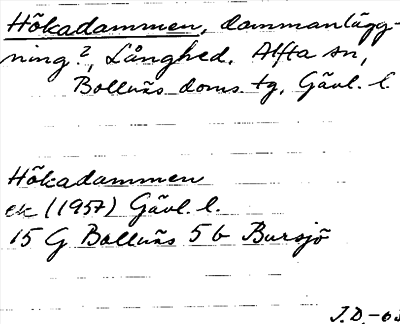 Hökadammen, dammanlägg-
ning?, Långhed. Alfta sn,
Bollnäs doms. tg, Gävl. l.
Hökadammen
ek (1957) Gävl. l.
15 G Bollnäs 5 b Bursjö
J.D.-63